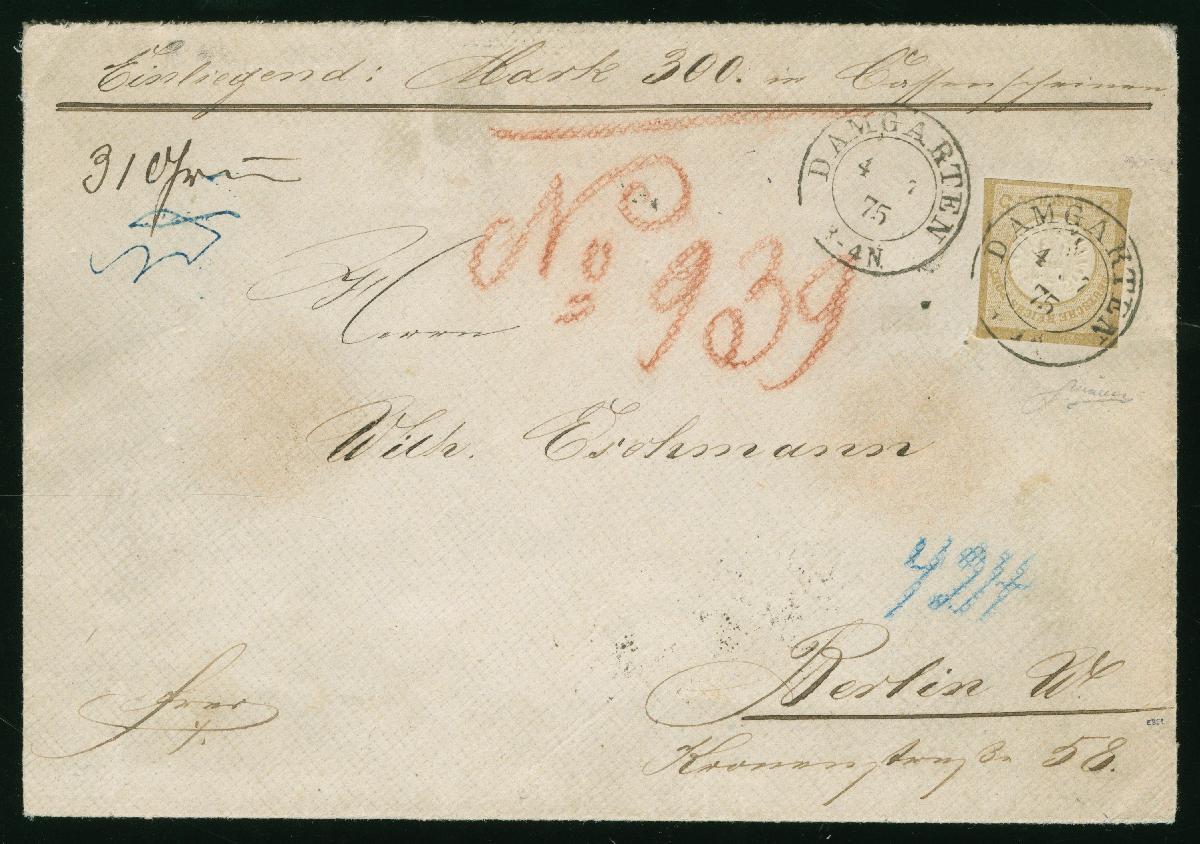 Einliegend: Mark 300. in Cassenscheinen
31 Grm
No 939
DAMGARTEN
4 7
75
3-4N.
DAMGARTEN
4
75
Herrn
Wilh. Eschmann
424
Berlin W.
frei
Kronenstraße 58.